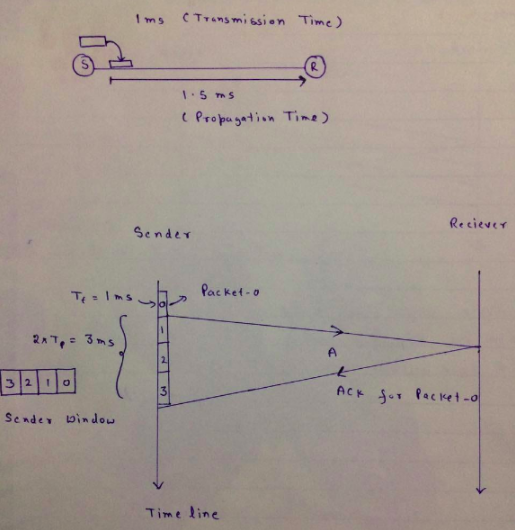 1ms (Transmission Time)
S
R
1.5 ms
(Propagation Time)
Sender
Reciever
Tt = 1ms
0
Packet-0
1
2xTp = 3ms
2
A
3
3 2 1 0
ACK for Packet-0
Sender Window
Time line